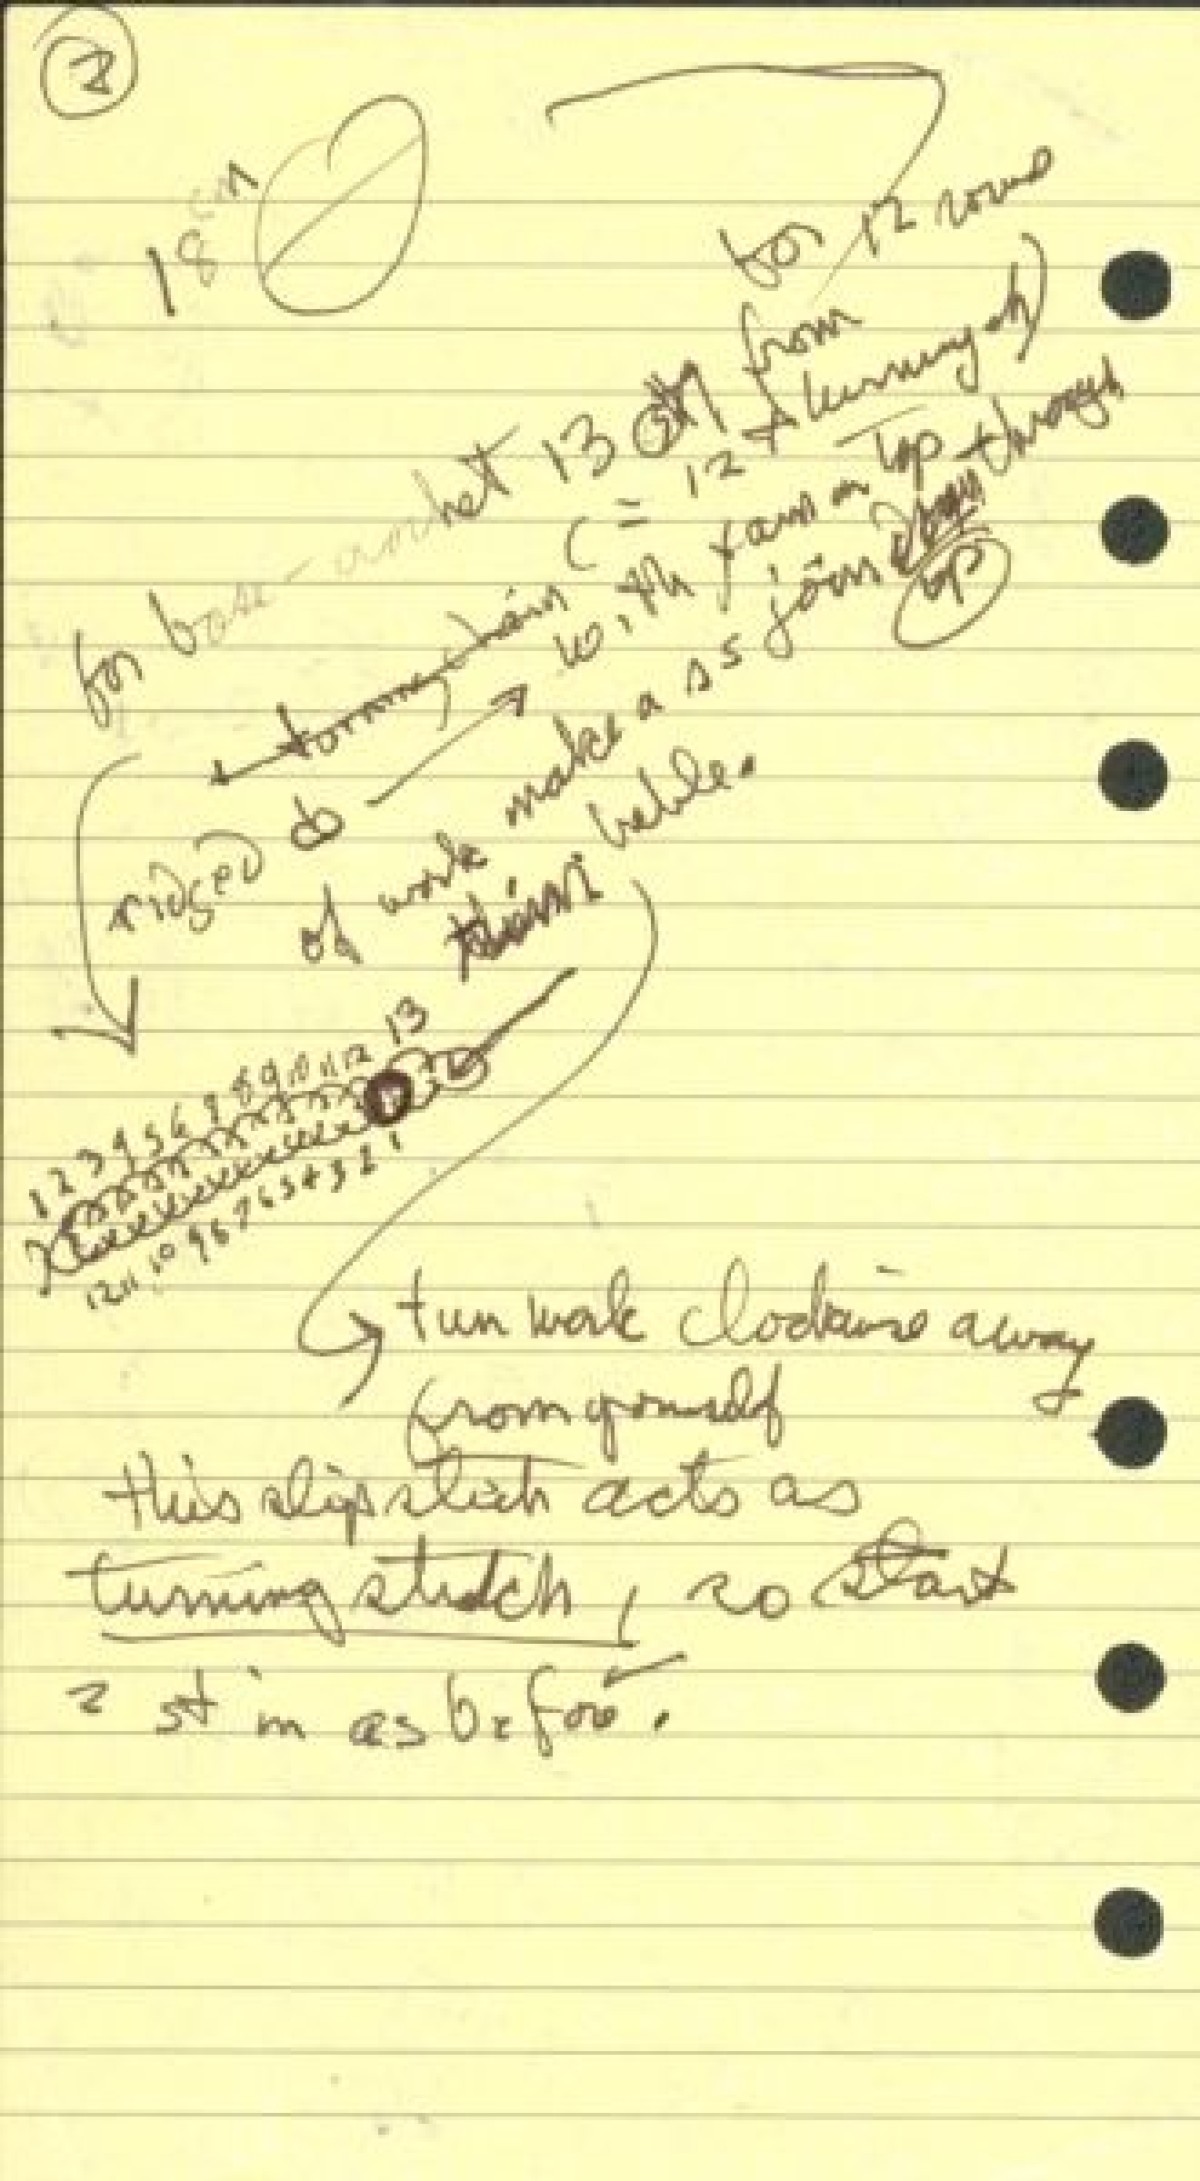 2
18 cm
for 12 rows
for base - crochet 13 ch from
turning chain (= 12 + turning ch)
ridged do → with yarn on top
of work make a ss join down through
top
bobble.
1 2 3 4 5 6 7 8 9 10 11 12 13
12 11 10 9 8 7 6 5 4 3 2 1
turn work clockwise away
from yourself
this slip stitch acts as
turning stitch, so start
2 st in as before.